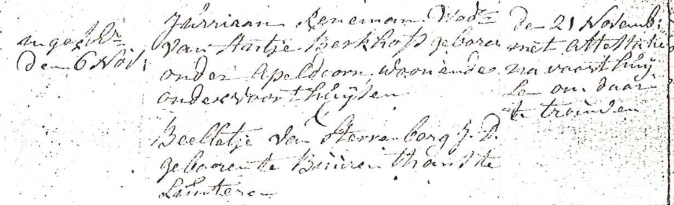 ingeschr
den 6 Nov:
Jurriaan Reneman Wedr
van Aartje Berkhoff geboren
onder Apeldoorn woonende
onder voorthuijsen
X
Beeltetje van Sterrenborg J. D.
geboren te Buuren thans te
Lunteren
den 21 Novemb:
met attestatie
na voorthuij
sen om daar
te trouwen